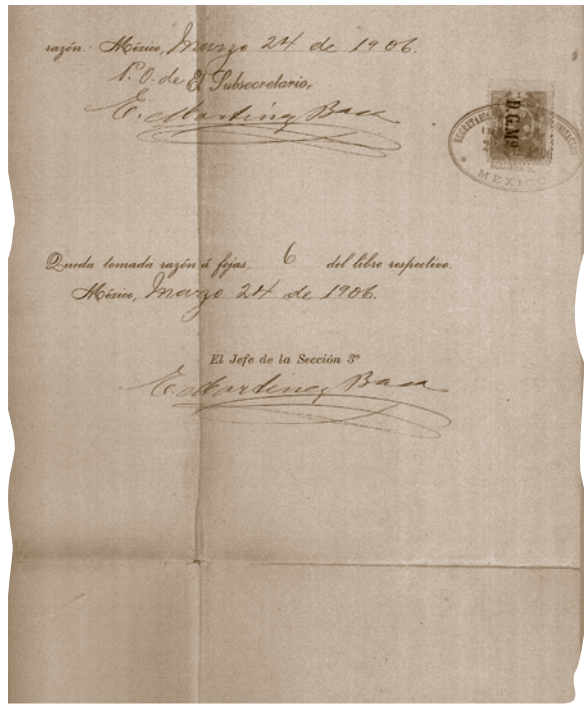 razón. México, Marzo 24 de 1906.
P. O. de El Subsecretario,
E. Martínez Baca
D.G.Mº.
MEXICO
Queda tomada razón á fojas 6 del libro respectivo.
México, Marzo 24 de 1906.
El Jefe de la Sección 3ª
E. Martinez Baca